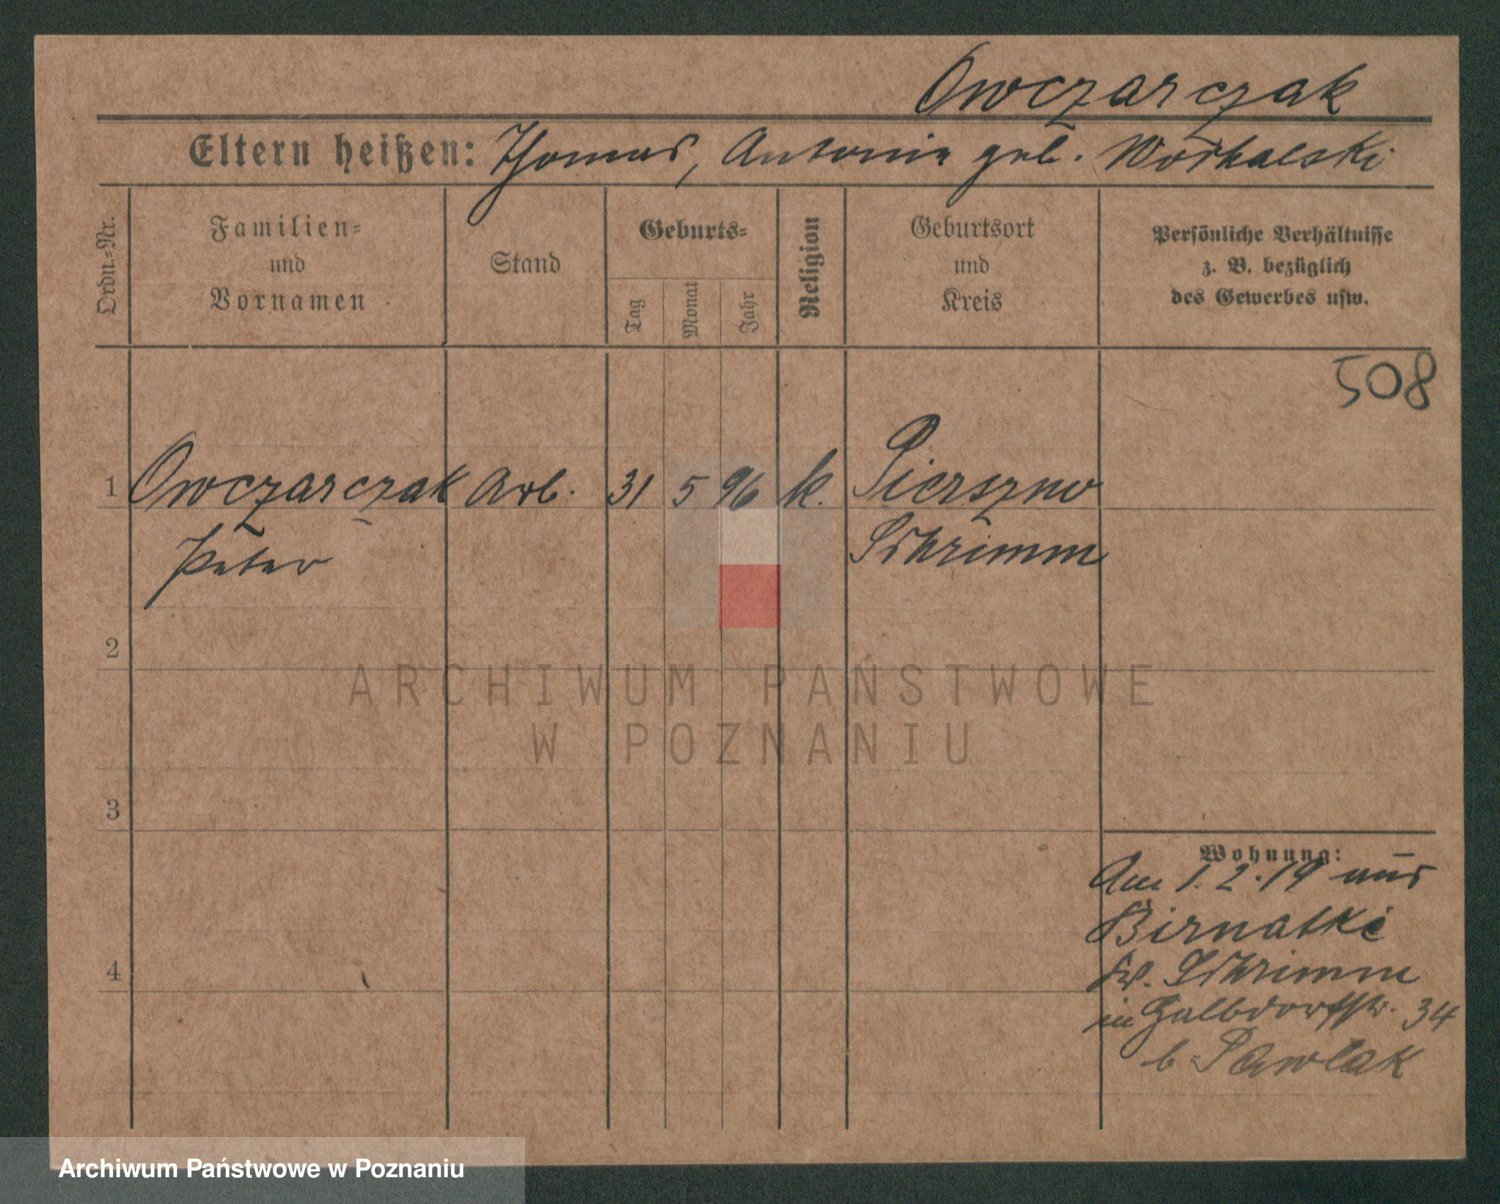 Owczarczak
Eltern heißen: Thomas, Antonie geb.
Ordn.-Nr.
Familien-
und
Vornamen
Stand
Geburts-
Tag
Monat
Jahr
Religion
Geburtsort
und
Kreis
Persönliche Verhältnisse
z. B. bezüglich
des Gewerbes usw.
508
1 Owczarczak Arb. 31 5 96 k. Pierszno
Peter Schrimm
2
ARCHIWUM PAŃSTWOWE
W POZNANIU
3
Wohnung:
Am 1.2.19 aus
Birnatki
Kr. Schrimm
4
in 34
b Pawlak
Archiwum Państwowe w Poznaniu